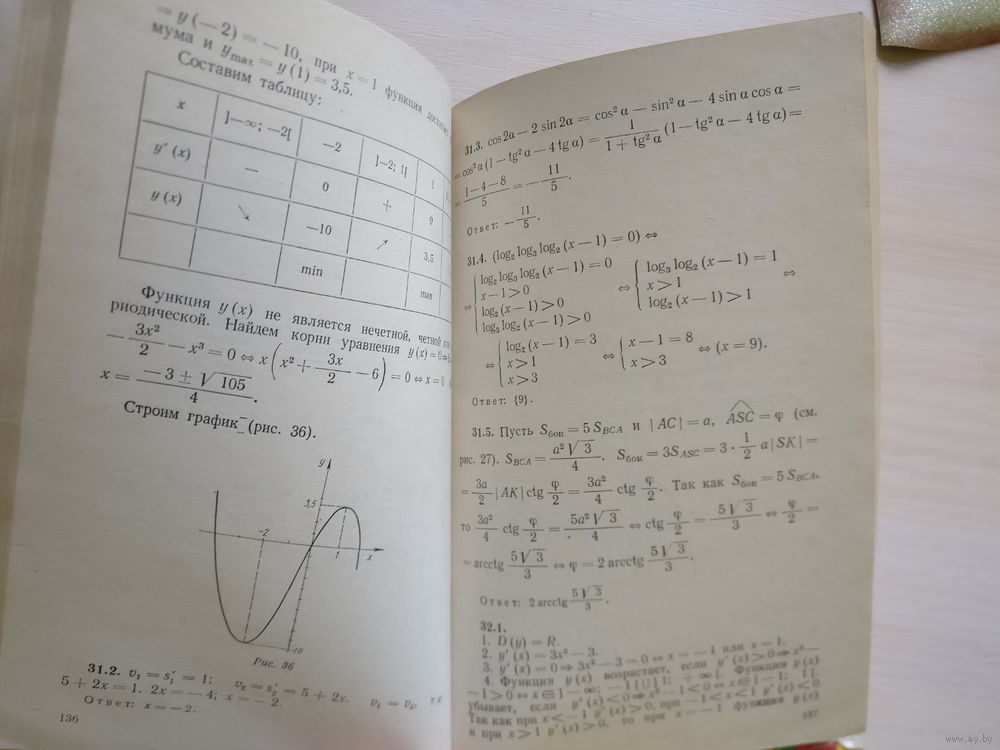 = y (— 2) = — 10, при x = 1 функция
мума и y_max = y (1) = 3,5.
Составим таблицу:
x ]—∞; —2[ —2 ]—2; 1[ 1
y′ (x) — 0 + 0
y (x) ↘ —10 ↗ 3,5
min max
Функция y (x) не является нечетной, четной или
риодической. Найдем корни уравнения y (x) = 0 ⇒
— 3x²/2 — x³ = 0 ⇔ x (x² + 3x/2 — 6) = 0 ⇔ x = 0
x = (— 3 ± √105)/4.
Строим график (рис. 36).
y
3,5
—2
1
x
—10
Рис. 36
31.2. v₁ = s′₁ = 1; v₂ = s′₂ = 5 + 2x. v₁ = v₂, т.е.
5 + 2x = 1. 2x = — 4; x = — 2.
Ответ: x = — 2.
136
31.3. cos 2α — 2 sin 2α = cos² α — sin² α — 4 sin α cos α =
= cos² α (1 — tg² α — 4 tg α) = 1/(1 + tg² α) (1 — tg² α — 4 tg α) =
= (1 — 4 — 8)/5 = — 11/5.
Ответ: — 11/5.
31.4. (log₂ log₃ log₂ (x — 1) = 0) ⇔
⇔ { log₂ log₃ log₂ (x — 1) = 0
x — 1 > 0
log₂ (x — 1) > 0
log₃ log₂ (x — 1) > 0
⇔ { log₃ log₂ (x — 1) = 1
x > 1
log₂ (x — 1) > 1
⇔
⇔ { log₂ (x — 1) = 3
x > 1
x > 3
⇔ { x — 1 = 8
x > 3
⇔ (x = 9).
Ответ: {9}.
31.5. Пусть S_бок = 5 S_BCA и | AC | = a, ∠ASC = φ (см.
рис. 27). S_BCA = a²√3/4. S_бок = 3S_ASC = 3 · 1/2 a | SK | =
= 3a/2 | AK | ctg φ/2 = 3a²/4 ctg φ/2. Так как S_бок = 5 S_BCA,
то 3a²/4 ctg φ/2 = 5a²√3/4 ⇔ ctg φ/2 = 5√3/3 ⇔ φ/2 =
= arcctg 5√3/3 ⇔ φ = 2 arcctg 5√3/3.
Ответ: 2 arcctg 5√3/3.
32.1.
1. D (y) = R.
2. y′ (x) = 3x² — 3.
3. y′ (x) = 0 ⇒ 3x² — 3 = 0 ⇔ x = — 1 или x = 1.
4. Функция y (x) возрастает, если y′ (x) > 0 ⇒ x² —
— 1 > 0 ⇔ x ∈ ] — ∞; — 1 [ ∪ ] 1; + ∞ [. Функция y (x)
убывает, если y′ (x) < 0 ⇒ x² — 1 < 0 ⇔ x ∈ ] — 1; 1 [.
Так как при x < — 1 y′ (x) > 0, при — 1 < x < 1 y′ (x) < 0
и при x > 1 y′ (x) > 0, то при x = — 1 функция y (x)
137
www.ay.by